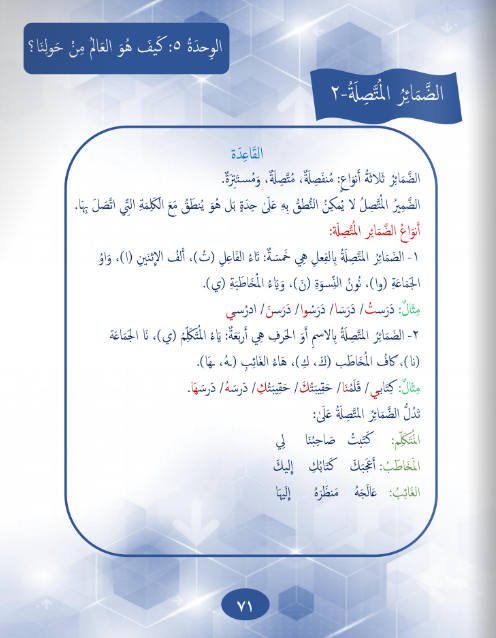 الوِحدَةُ ٥: كَيفَ هُوَ العَالمُ مِنْ حَولِنَا؟
الضَّمَائِرُ المُتَّصِلَةُ-٢
القَاعِدَة
الضَّمَائِرُ ثَلاثَةُ أَنوَاعٍ: مُنفَصِلَةٌ، مُتَّصِلَةٌ، وَمُستَتِرَةٌ.
الضَّمِيرُ المُتَّصِلُ لا يُمكِنُ النُّطقُ بِهِ عَلىٰ حِدَةٍ بَل هُوَ يُنطَقُ مَعَ الكَلِمَةِ الَّتِي اتَّصَلَ بِهَا.
أَنوَاعُ الضَّمَائِرِ المُتَّصِلَة:
١- الضَّمَائِرُ المُتَّصِلَةُ بِالفِعلِ هِي خَمسَةٌ: تَاءُ الفَاعِلِ (تُ)، أَلَفُ الإثنَينِ (ا)، وَاوُ
الجَمَاعَةِ (وا)، نُونُ النِّسوَةِ (نَ)، وَيَاءُ المُخَاطَبَةِ (ي).
مِثَالٌ: دَرَستُ/ دَرَسَا/ دَرَسُوا/ دَرَسنَ/ ادرُسي
٢- الضَّمَائِرُ المُتَّصِلَةُ بِالاسمِ أَوِ الحَرفِ هِي أَربَعَةٌ: يَاءُ المُتَكَلِّمِ (ي)، نَا الجَمَاعَة
(نا)، كَافُ المُخَاطَب (كَ، كِ)، هَاءُ الغَائِبِ (ـهُ، ـهَا).
مِثَالٌ: كِتَابي/ قَلَمُنَا/ حَقِيبَتُكَ/ حَقِيبَتُكِ/ دَرسَهُ/ دَرسَهَا.
تَدُلُّ الضَّمَائِرُ المُتَّصِلَةُ عَلَىٰ:
المُتَكَلِّمِ: كَتَبتُ صَاحِبُنَا لِي
المُخَاطَبُ: أَعجَبَكَ كَتَابُكِ إِليكَ
الغَائِبُ: عَالَجَهُ مَنظَرُهُ إِلَيهَا
٧١